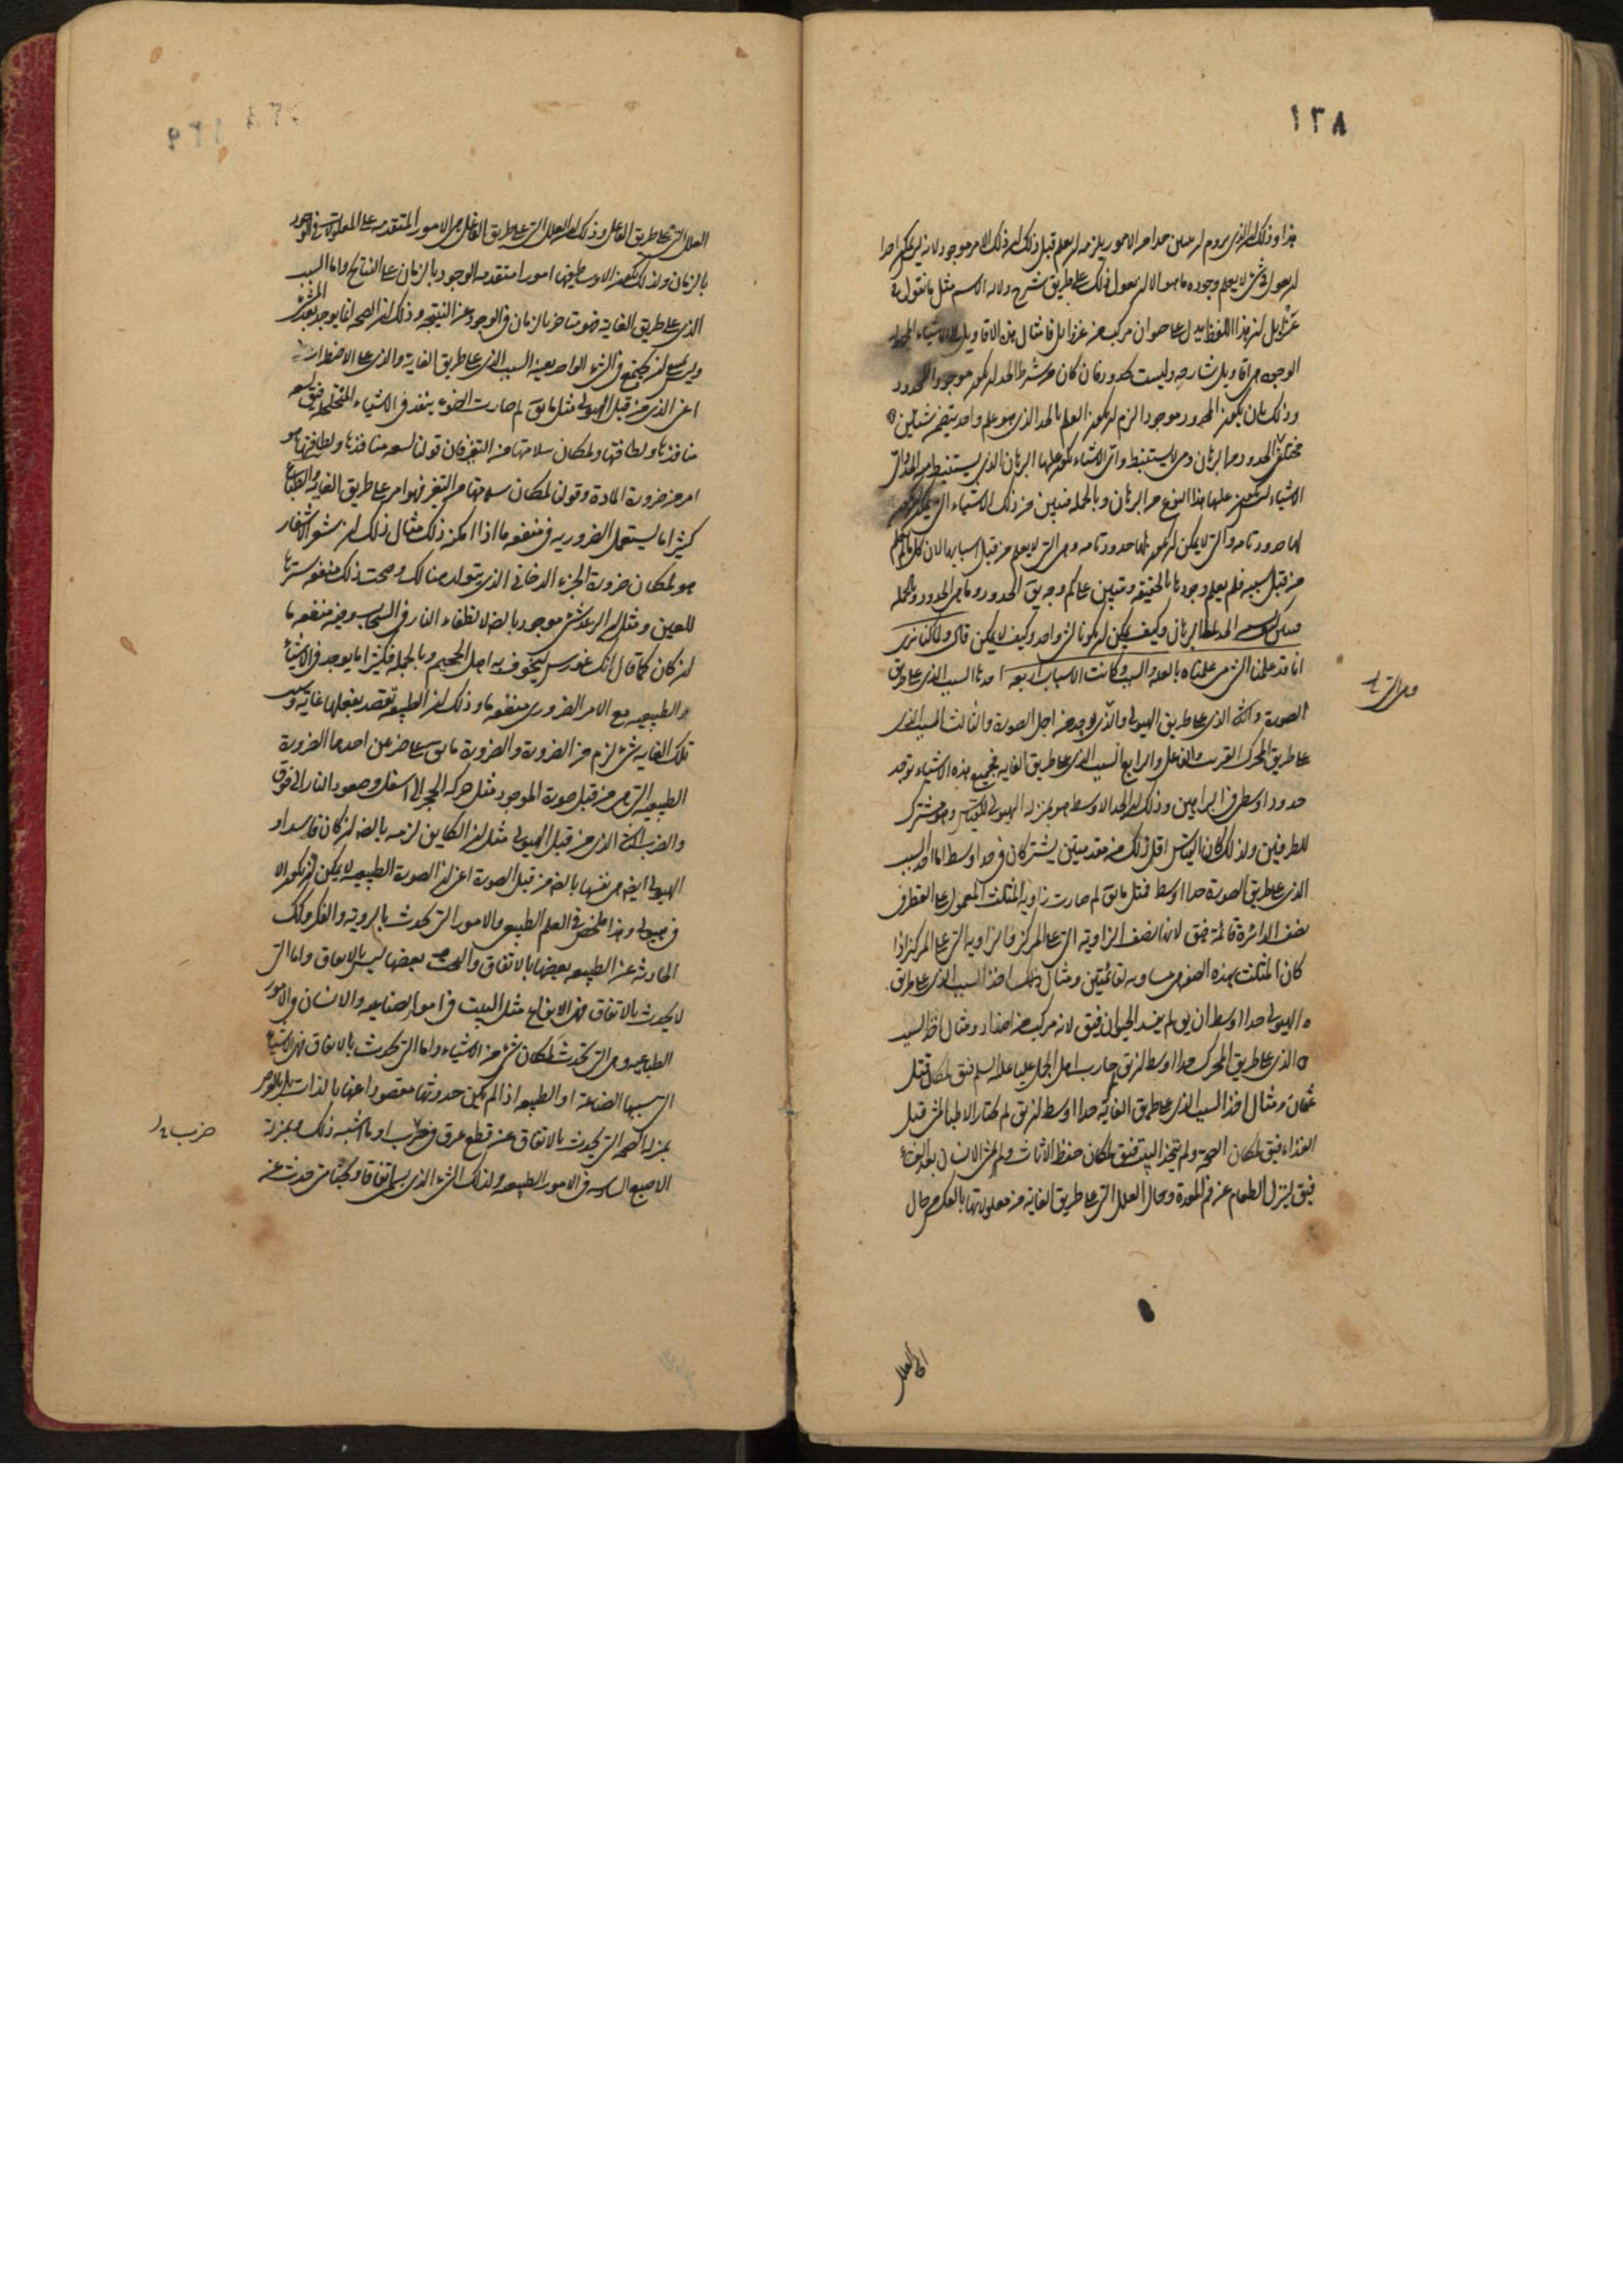 ١٣٨
هذا وذلك ان الذى يروم ان يبين حد امر من الامور يلزمه ان يعلم قبل ذلك ان ذلك الامر موجود لانه ليس يمكن احدا
ان يقول فى شئ لا يعلم وجوده ما هو الا ان يقول ذلك على طريق شرح دلالة الاسم مثل ما نقول فى
عنزايل ان هذا اللفظ يدل على حيوان مركب من عنز وايل فامثال هذه الاقاويل على الاشياء المجهولة
الوجود هى اقاويل شارحة وليست بحدود فان كان من شرط الحد ان يكون موجودا للمحدود
وذلك بان يكون المحدود موجودا لزم ان يكون العلم بالحد الذى هو علم واحد يتضمن شيئين
الاشياء ليس يكون عليها هذا النوع من البرهان وبالجملة فتبين من ذلك الاشياء التى يمكن ان يكون
لها حدود تامة والتى لا يمكن ان يكون لها حدود تامة وهى التى لا يعلم من قبل اسبابها لان كل ما لم يعلم
من قبل سببه فلم يعلم وجودها بالحقيقة وتبين على كم وجه يق الحدود وما هى الحدود وبالجملة
الحد للبرهان وكيف يمكن ان يكونا لشئ واحد وكيف لا يمكن قال ولما كنا نرى
انا قد علمنا الشئ متى علمناه بالعلة والسبب وكانت الاسباب اربعة احدها السبب الذى على طريق
الصورة والثانى الذى على طريق الهيولى والذى يوجد من اجل الصورة والثالث السبب الذى
على طريق المحرك القريب والفاعل والرابع السبب الذى على طريق الغاية فجميع هذه الاشياء توجد
حدودا وسطى فى البراهين وذلك ان الحد الاوسط هو بمنزلة الهيولى للقياس وهو مشترك
للطرفين ولذلك كان القياس اقل ذلك من مقدمتين يشتركان فى حد اوسط اما اخذ السبب
الذى على طريق الصورة حدا اوسط فمثل ما يق لم صارت زاوية المثلث المعمول على القطر فى
نصف الدائرة قائمة فيق لانها نصف الزاوية التى على المركز والزاوية التى على المركز اذا
كان المثلث بهذه الصفة هى مساوية لقائمتين ومثال ذلك اخذ السبب الذى على طريق
الهيولى حدا اوسط ان يق لم يفسد الحيوان فيق لانه مركب من اضداد ومثال اخذ السبب
الذى على طريق المحرك حدا اوسط ان يق لم حارب اهل الجمل عليا عليه السلم فيق لمكان قتل
عثمان ومثال اخذ السبب الذى على طريق الغاية حدا اوسط ان يق لم يختار الاطباء المشى قبل
الغذاء فيق لمكان الصحة ولم يتخذ البيت فيق لمكان حفظ الاثاث ولم يمشى الانسان بعد العشاء
فيق لينزل الطعام عن فم المعدة وحال العلل التى على طريق الغاية من معلولاتها بالعكس من حال
العلل التى على طريق الفاعل وذلك ان العلل التى على طريق الفاعل هى الامور المتقدمة على المعلولات فى الوجود
بالزمان ولذلك تكون الاوساط فيها امورا متقدمة الوجود بالزمان على النتائج واما السبب
الذى على طريق الغاية فهو متاخر بالزمان فى الوجود عن النتيجة وذلك ان الصحة انما يوجد بعد المشى
وليس يمتنع ان يجتمع فى الشئ الواحد بعينه السبب الذى على طريق الغاية والذى على الاضطرار
اعنى الذى من قبل الهيولى مثل ما يق لم صارت الضوء ينفذ فى الاشياء المتخلخلة فيق لسعة
منافذها ولطافتها ولمكان سلامتها من التغير فان قولنا لسعة منافذها ولطافتها هو
امر من ضرورة المادة وقولنا لمكان سلامتها من التغير فهو امر على طريق الغاية والطباع
كثيرا ما يستعمل الضرورية فى منفعة ما اذا امكن ذلك مثال ذلك ان شعر الاشفار
هو لمكان ضرورة الجزء الدخانى الذى يتولد هنالك وصحب ذلك منفعة سترها
للعين ومثل ان الرعد شئ موجود بالضرورة لانطفاء النار فى السحاب وفيه منفعة ما
ان كان كما قال فيثاغورس ليخوف به اهل الجحيم وبالجملة فكثيرا ما يوجد فى الاشياء
الطبيعية مع الامر الضرورى منفعة ما وذلك ان الطبيعة تقصد بفعلها غاية وبسبب
تلك الغاية شئ لزم من الضرورة والضرورة ما يق على ضربين احدهما الضرورة
الطبيعية التى هى من قبل صورة الموجود مثل حركة الحجر الى اسفل وصعود النار الى فوق
والضرب الثانى الذى من قبل الهيولى مثل ان الكاين لزمه بالضرورة ان كان فاسدا و
الهيولى ايضا هى نفسها بالضرورة من قبل الصورة اعنى ان الصورة الطبيعية لا يمكن ان تكون الا
فى هيولى وهذا ملخص فى العلم الطبيعى والامور التى تحدث بالروية والفكر وتلك
الحادثة عن الطبيعة بعضها بالاتفاق والبخت وبعضها ليس بالاتفاق واما التى
لا يحدث بالاتفاق فهى الانواع مثل البيت فى امور الصناعية والانسان فى الامور
الطباعية وهى التى تحدث لمكان شئ من الاشياء واما التى تحدث بالاتفاق فهى الاشياء
التى سببها الصناعة او الطبيعة اذا لم يكن حدوثها مقصودا عنها بالذات بل بالعرض
بمنزلة الصحة التى يحدث بالاتفاق عن قطع عرق فى حرب او ما اشبه ذلك وبمنزلة
الاصبع السادسة فى الامور الطبيعية ولذلك الشئ الذى يسمى اتفاقا وبختا متى حدث عن